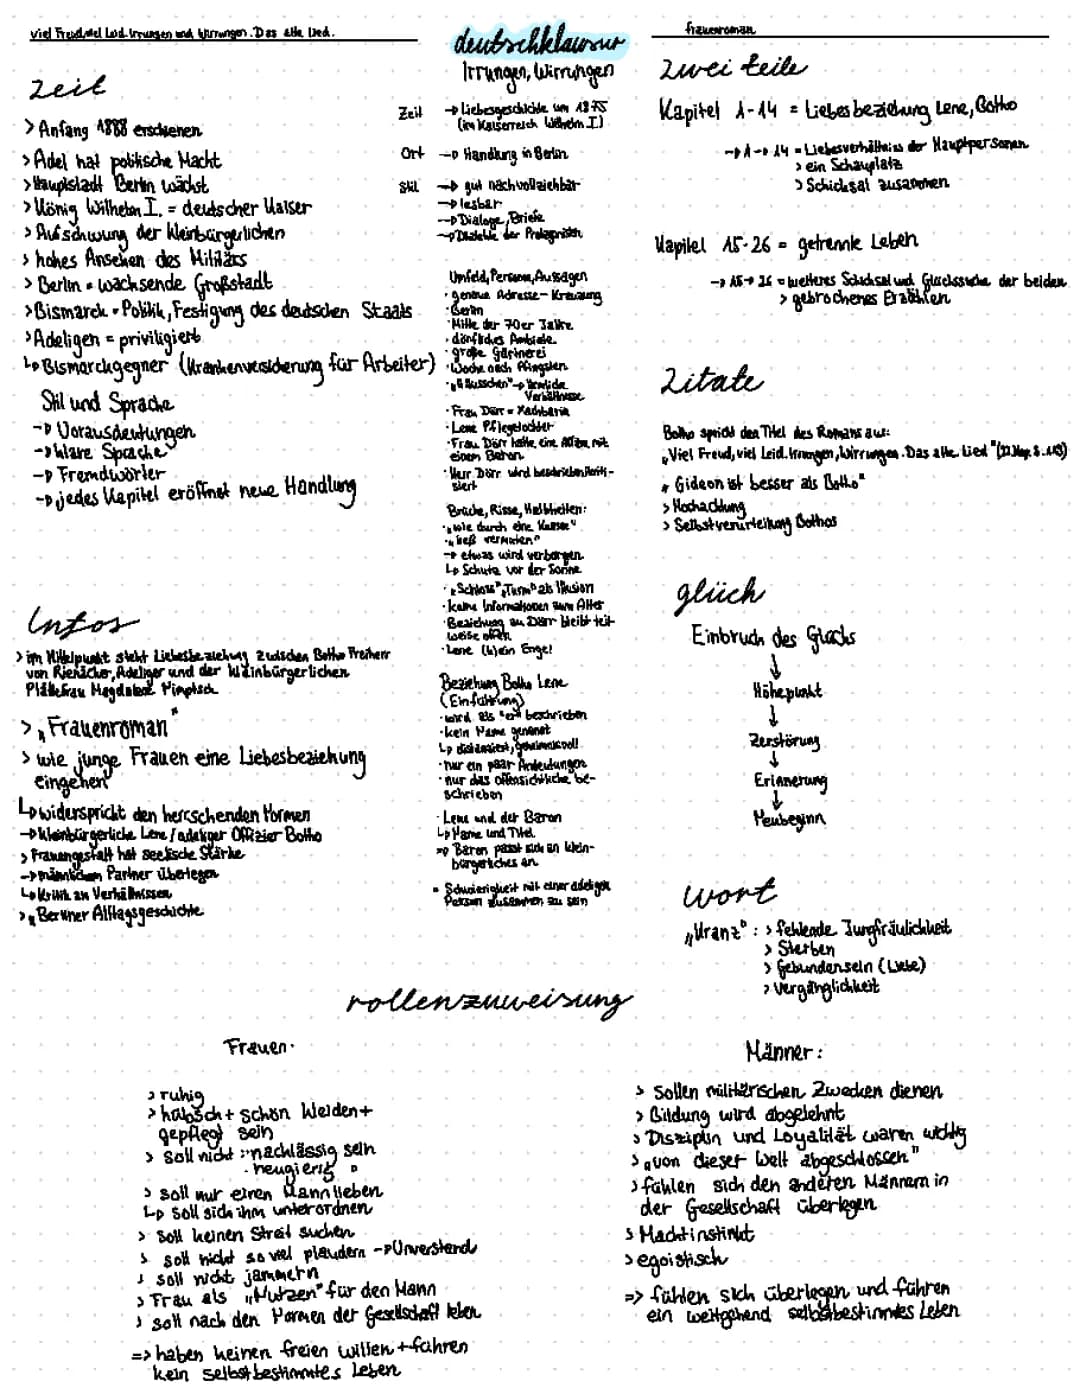 viel Freud, viel Leid. Irrungen und Wirrungen. Das alte Lied.
deutschklausur
Irrungen, Wirrungen
frauenroman
zeit
> Anfang 1888 erschienen
> Adel hat politische Macht
> Hauptstadt Berlin wächst
> König Wilhelm I. = deutscher Kaiser
> Aufschwung der Kleinbürgerlichen
> hohes Ansehen des Militärs
> Berlin = wachsende Großstadt
> Bismarck = Politik, Festigung des deutschen Staats
> Adeligen = priviligiert
↳ Bismarckgegner (Krankenversicherung für Arbeiter)
Stil und Sprache
-> Vorausdeutungen
-> klare Sprache
-> Fremdwörter
-> jedes Kapitel eröffnet neue Handlung
Infos
> im Mittelpunkt steht Liebesbeziehung zwischen Botho Freiherr
von Rienäcker, Adeliger und der kleinbürgerlichen
Plättfrau Magdalene Nimptsch
> „Frauenroman"
> wie junge Frauen eine Liebesbeziehung
eingehen
↳ widerspricht den herrschenden Normen
-> kleinbürgerliche Lene / adeliger Offizier Botho
> Frauengestalt hat seelische Stärke
-> männlichem Partner überlegen
↳ Kritik an Verhältnissen
> „Berliner Alltagsgeschichte
Zeit -> Liebesgeschichte um 1875
(im Kaiserreich Wilhelm I.)
Ort -> Handlung in Berlin
Stil -> gut nachvollziehbar
-> lesbar
-> Dialoge, Briefe
-> Dialekte der
Umfeld, Personen, Aussagen
· genaue Adresse - Kreuzung
· Berlin
· Mitte der 70er Jahre
· dörfliches Ambiente
· große Gärtnerei
· Woche nach Pfingsten
-> ärmliche
Verhältnisse
· Frau Dörr = Nachbarin
· Lene Pflegetochter
· Frau Dörr hatte eine Affäre mit
einem Baron
· Herr Dörr wird beschrieben
Brüche, Risse, Halbheiten:
· „wie durch eine Kulisse"
· „ließ vermuten"
-> etwas wird verborgen
↳ Schutz vor der Sonne
· „Schloss", „Turm" als Illusion
· keine Informationen zum Alter
· Beziehung zu Dörr bleibt teil-
weise offen
· Lene (k)ein Engel
Beziehung Botho Lene
(Einführung)
· wird als "er" beschrieben
· kein Name genannt
↳ distanziert, geheimnisvoll
· nur ein paar Andeutungen
· nur das offensichtliche be-
schrieben
· Lene und der Baron
↳ Name und Titel
=> Baron passt sich an klein-
bürgerliches an
= Schwierigkeit mit einer adeligen
Person zusammen zu sein
zwei teile
Kapitel 1-14 = Liebesbeziehung Lene, Botho
-> 1-> 14 = Liebesverhältnis der Hauptpersonen
> ein Schauplatz
> Schicksal zusammen
Kapitel 15-26 = getrennte Leben
-> 15-> 26 = weiteres Schicksal und Glückssuche der beiden
> gebrochenes Erzählen
zitate
Botho spricht den Titel des Romans aus:
„Viel Freud, viel Leid. Irrungen, Wirrungen. Das alte Lied"
„Gideon ist besser als Botho"
> Hochachtung
> Selbstverurteilung Bothos
glück
Einbruch des Glücks
↓
Höhepunkt
↓
Zerstörung
↓
Erinnerung
↓
Neubeginn
wort
„Kranz" : > fehlende Jungfräulichkeit
> Sterben
> Gebundensein (Liebe)
> Vergänglichkeit
rollenzuweisung
Frauen:
> ruhig
> hübsch + schön kleiden +
gepflegt sein
> soll nicht : · nachlässig sein
· neugierig
> soll nur einen Mann lieben
↳ soll sich ihm unterordnen
> soll keinen Streit suchen
> soll nicht so viel plaudern -> Unverstand
> soll nicht jammern
> Frau als „Nutzen" für den Mann
> soll nach den Normen der Gesellschaft leben
=> haben keinen freien willen + führen
kein selbstbestimmtes Leben
Männer:
> sollen militärischen Zwecken dienen
> Bildung wird abgelehnt
> Disziplin und Loyalität waren wichtig
> „von dieser Welt abgeschlossen"
> fühlen sich den anderen Männern in
der Gesellschaft überlegen
> Machtinstinkt
> egoistisch
=> fühlen sich überlegen und führen
ein weitgehend selbstbestimmtes Leben